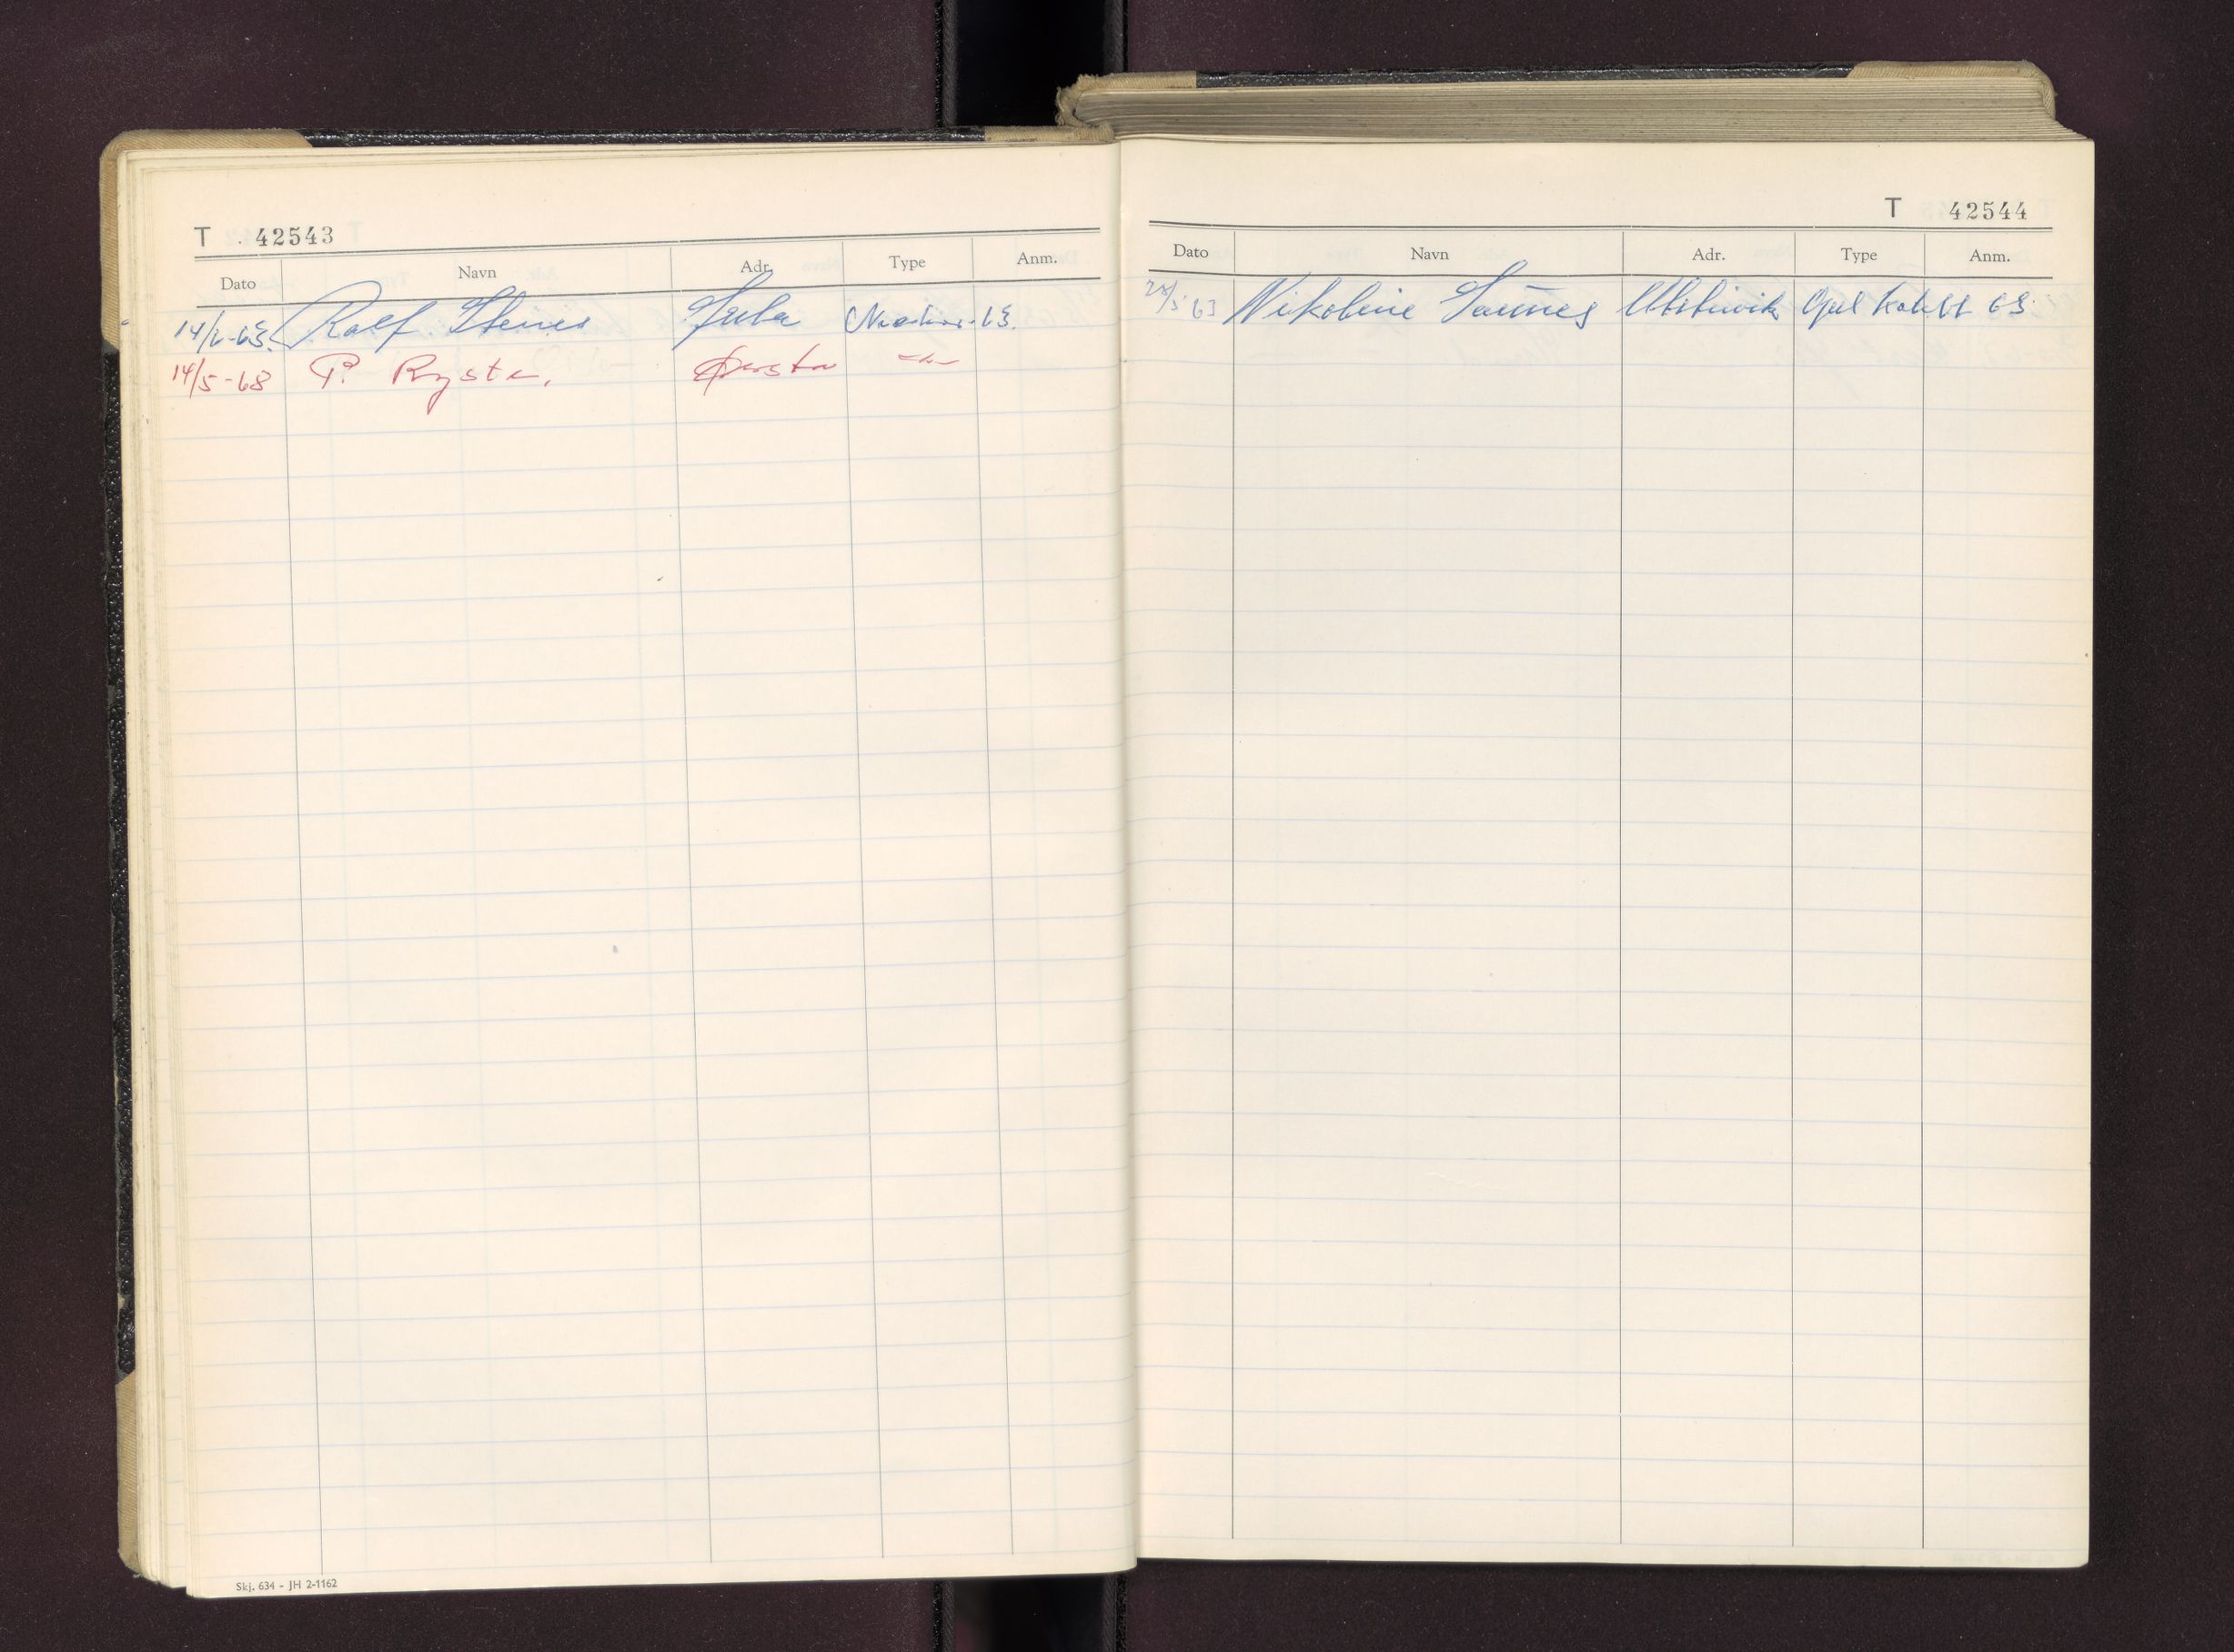 T 42543
Dato Navn Adr. Type Anm.
14/ -63. Rolf Stenes
14/5-68 P. Ryste. Ørsta —"—
Skj. 634 - JH 2-1162
T 42544
Dato Navn Adr. Type Anm.
/5 63 Nikoline Saunes Ulsteinvik Opel Kadett 63.